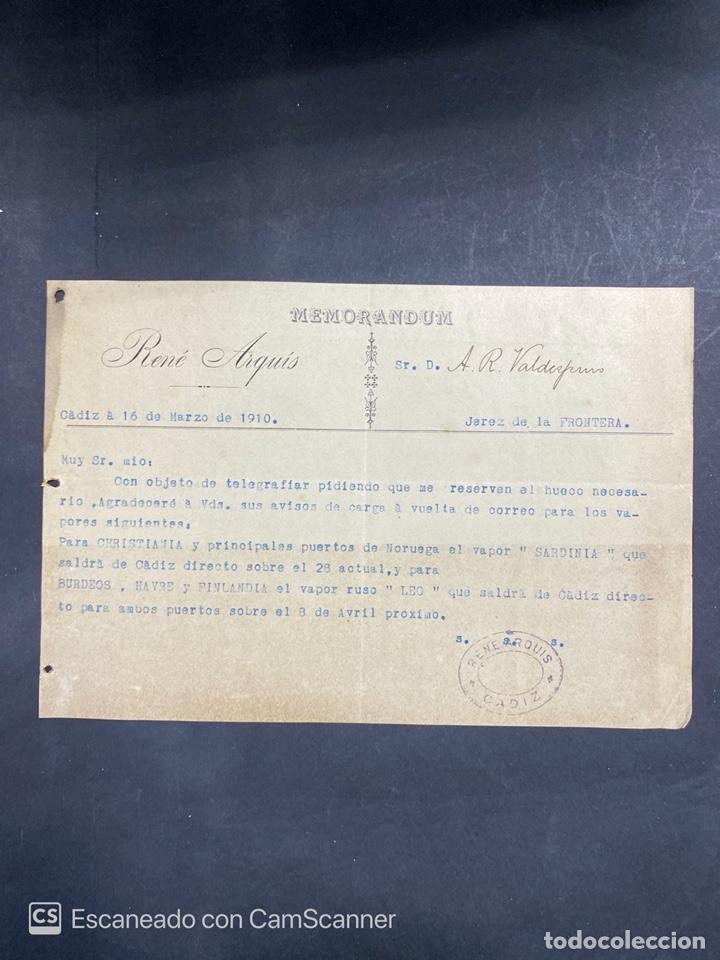 MEMORANDUM
René Arquís
Sr. D. A. R. Valdespino
Càdiz à 16 de Marzo de 1910.
Jerez de la FRONTERA.
Muy Sr. mio:
Con objeto de telegrafiar pidiendo que me reserven el hueco necesa-
rio ,Agradeceré à Vds. sus avisos de carga à vuelta de correo para los va-
pores siguientes:
Para CHRISTIANIA y principales puertos de Noruega el vapor " SARDINIA " que
saldrà de Càdiz directo sobre el 28 actual,y para
BURDEOS , HAVRE y FINLANDIA el vapor ruso " LEO " que saldrà de Càdiz direc-
to para ambos puertos sobre el 8 de Avril proximo.
s. s. s.
RENE ARQUIS
CADIZ
CS Escaneado con CamScanner
todocoleccion